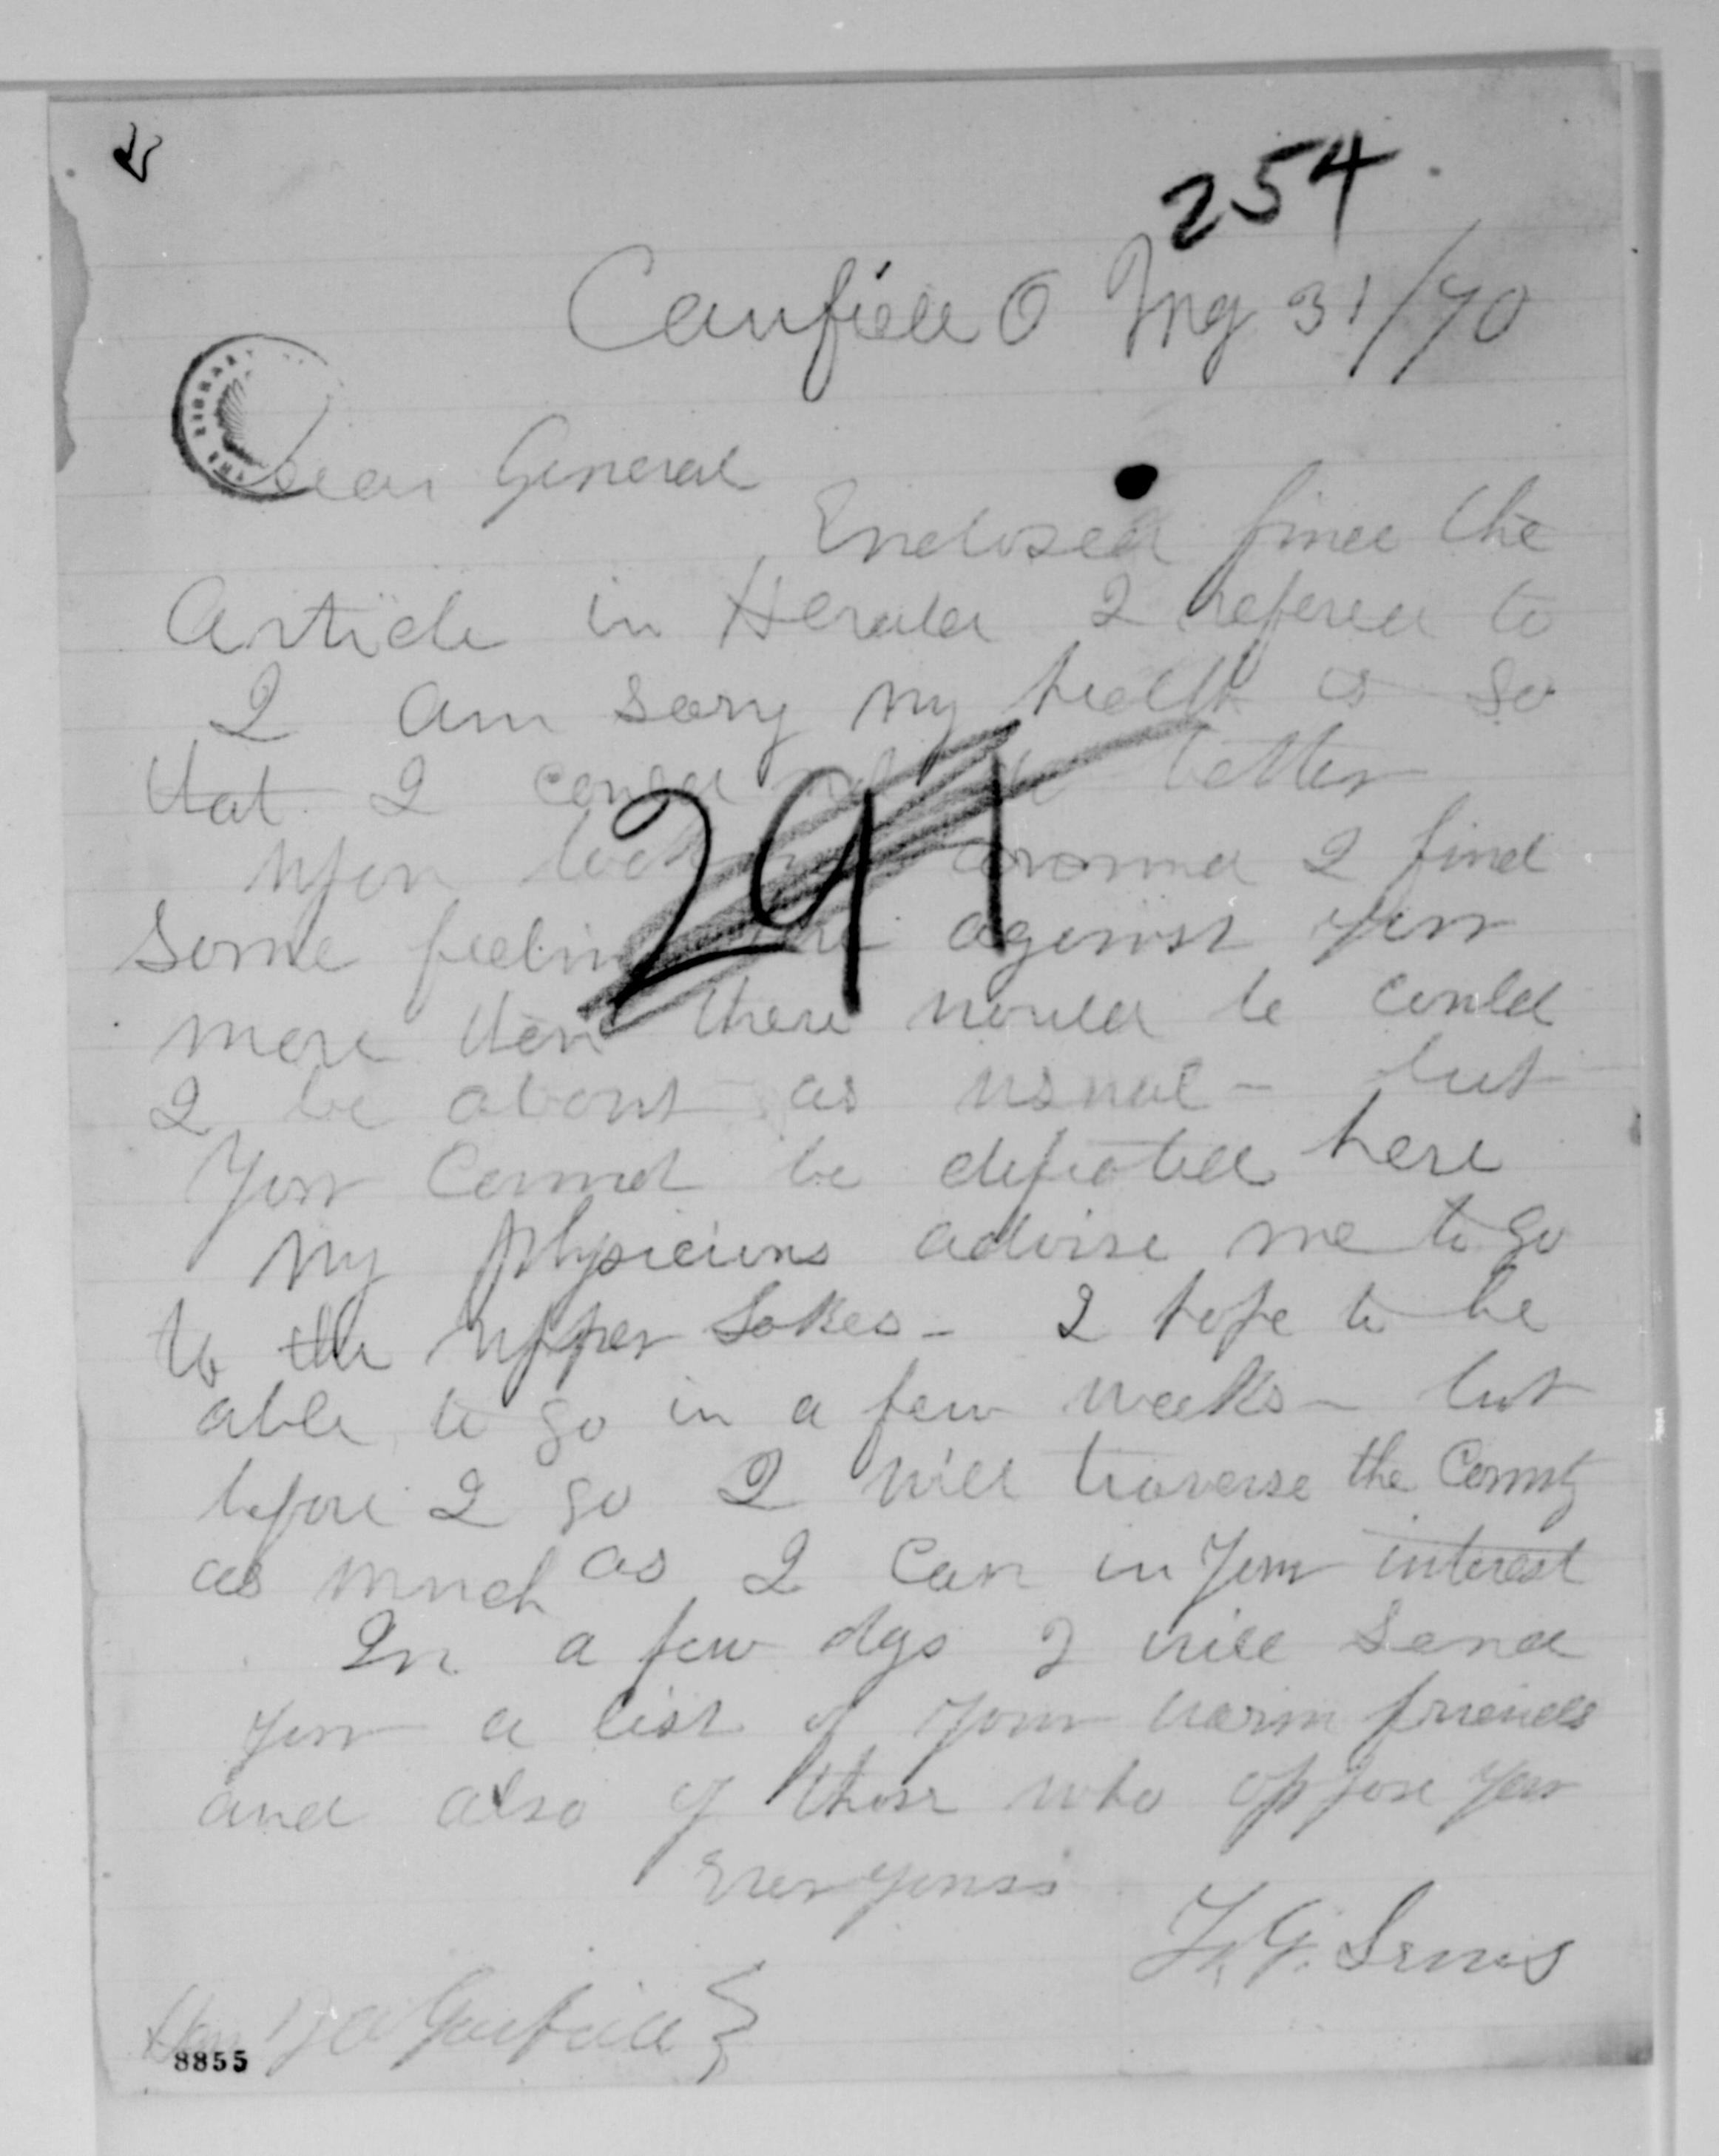 254
Canfield O May 31/70
Dear General
Enclosed find the
Article in Herald I refered to
I am sory my health is so
that I could not do better
291
upon looking around I find
some feeling here against you
more then there would be could
I be about as usual - but
You cannot be defeated here
My physicians advise me to go
to the upper Lakes - I hope to be
able to go in a few weeks - but
before I go I will traverse the County
as much as I can in your interest
In a few dys I will send
you a list of your warm friends
and also of those who oppose you
Ever yours
Hon J A Garfield }
8855